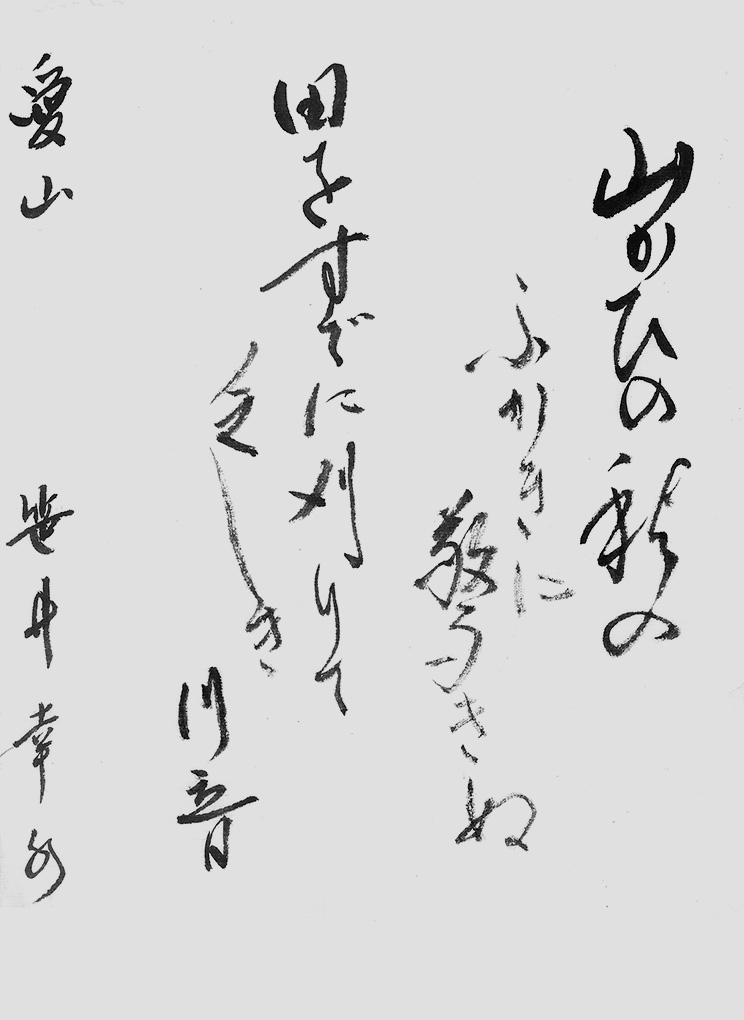 山かひの秋の
ふかきに
驚きぬ
田をすでに刈りて
乏しき
川音
愛山 笹井幸